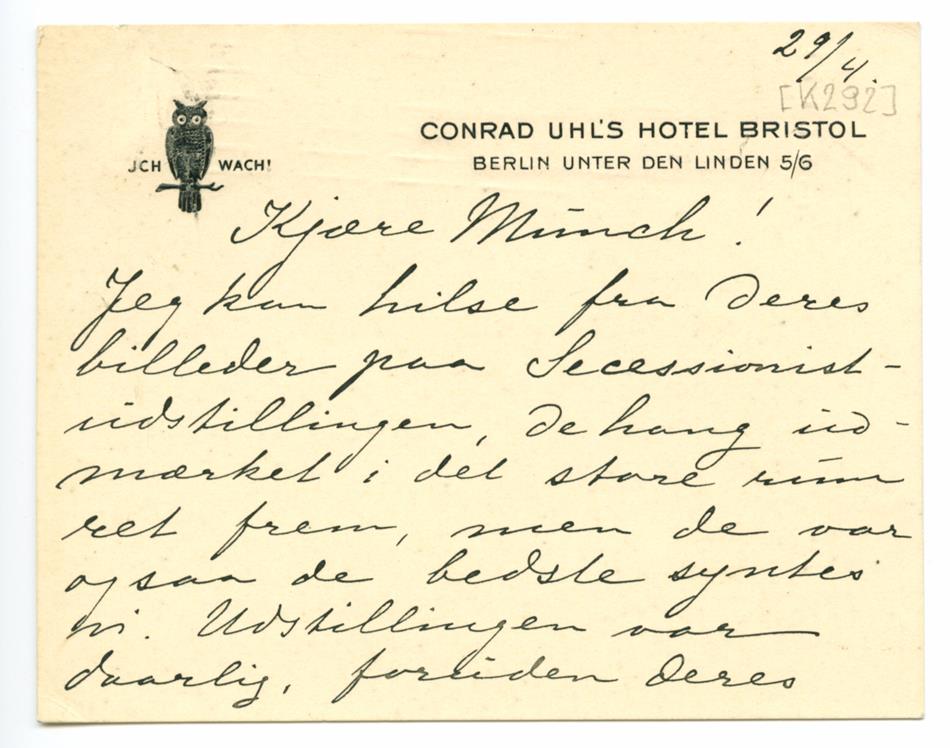 29/4.
[K292]
CONRAD UHL'S HOTEL BRISTOL
BERLIN UNTER DEN LINDEN 5/6
JCH WACH!
Kjære Munch!
Jeg kan hilse fra Deres
billeder paa Secessionist-
udstillingen, de hang ud-
mærket i det store rum
ret frem, men de var
ogsaa de bedste syntes
vi. Udstillingen var
daarlig, foruden Deres